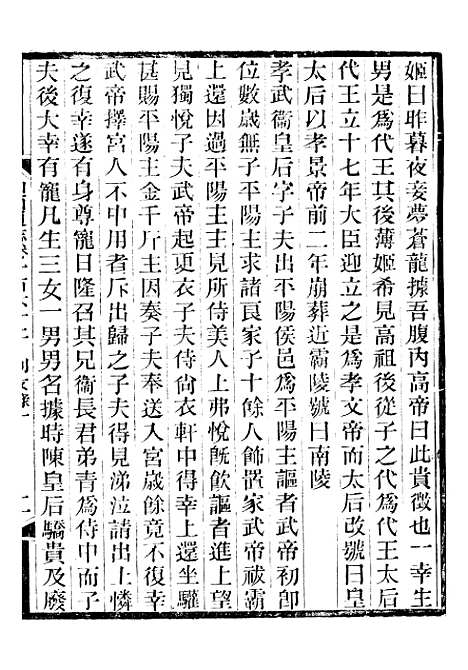 姬曰昨暮夜妾夢蒼龍據吾腹內高帝曰此貴徵也一幸生
男是爲代王其後薄姬希見高祖後從子之代爲代王太后
代王立十七年大臣迎立之爲孝文帝太后改號曰皇
太后以孝景帝前二年崩葬近霸陵號曰南陵
孝武衞皇后字子夫平陽侯邑爲平陽主謳者武帝初卽
位數歲無子平陽主求諸良家子十餘人飾置家武帝祓霸
上還因過平陽主主見所侍美人上弗悅旣飮謳者進上望
見獨悅子夫武帝起更衣子夫侍尙衣軒中得幸上還坐驩
甚賜平陽主金千斤主因奏子夫奉送入宮歲餘竟不復幸
武帝擇宮人不中用者斥出歸之子夫得見涕泣請出上憐
之復幸遂有身尊寵日隆召其兄衞長君弟靑爲侍中而子
夫後大幸有寵凡生三女一男男名據時陳皇后驕貴及廢